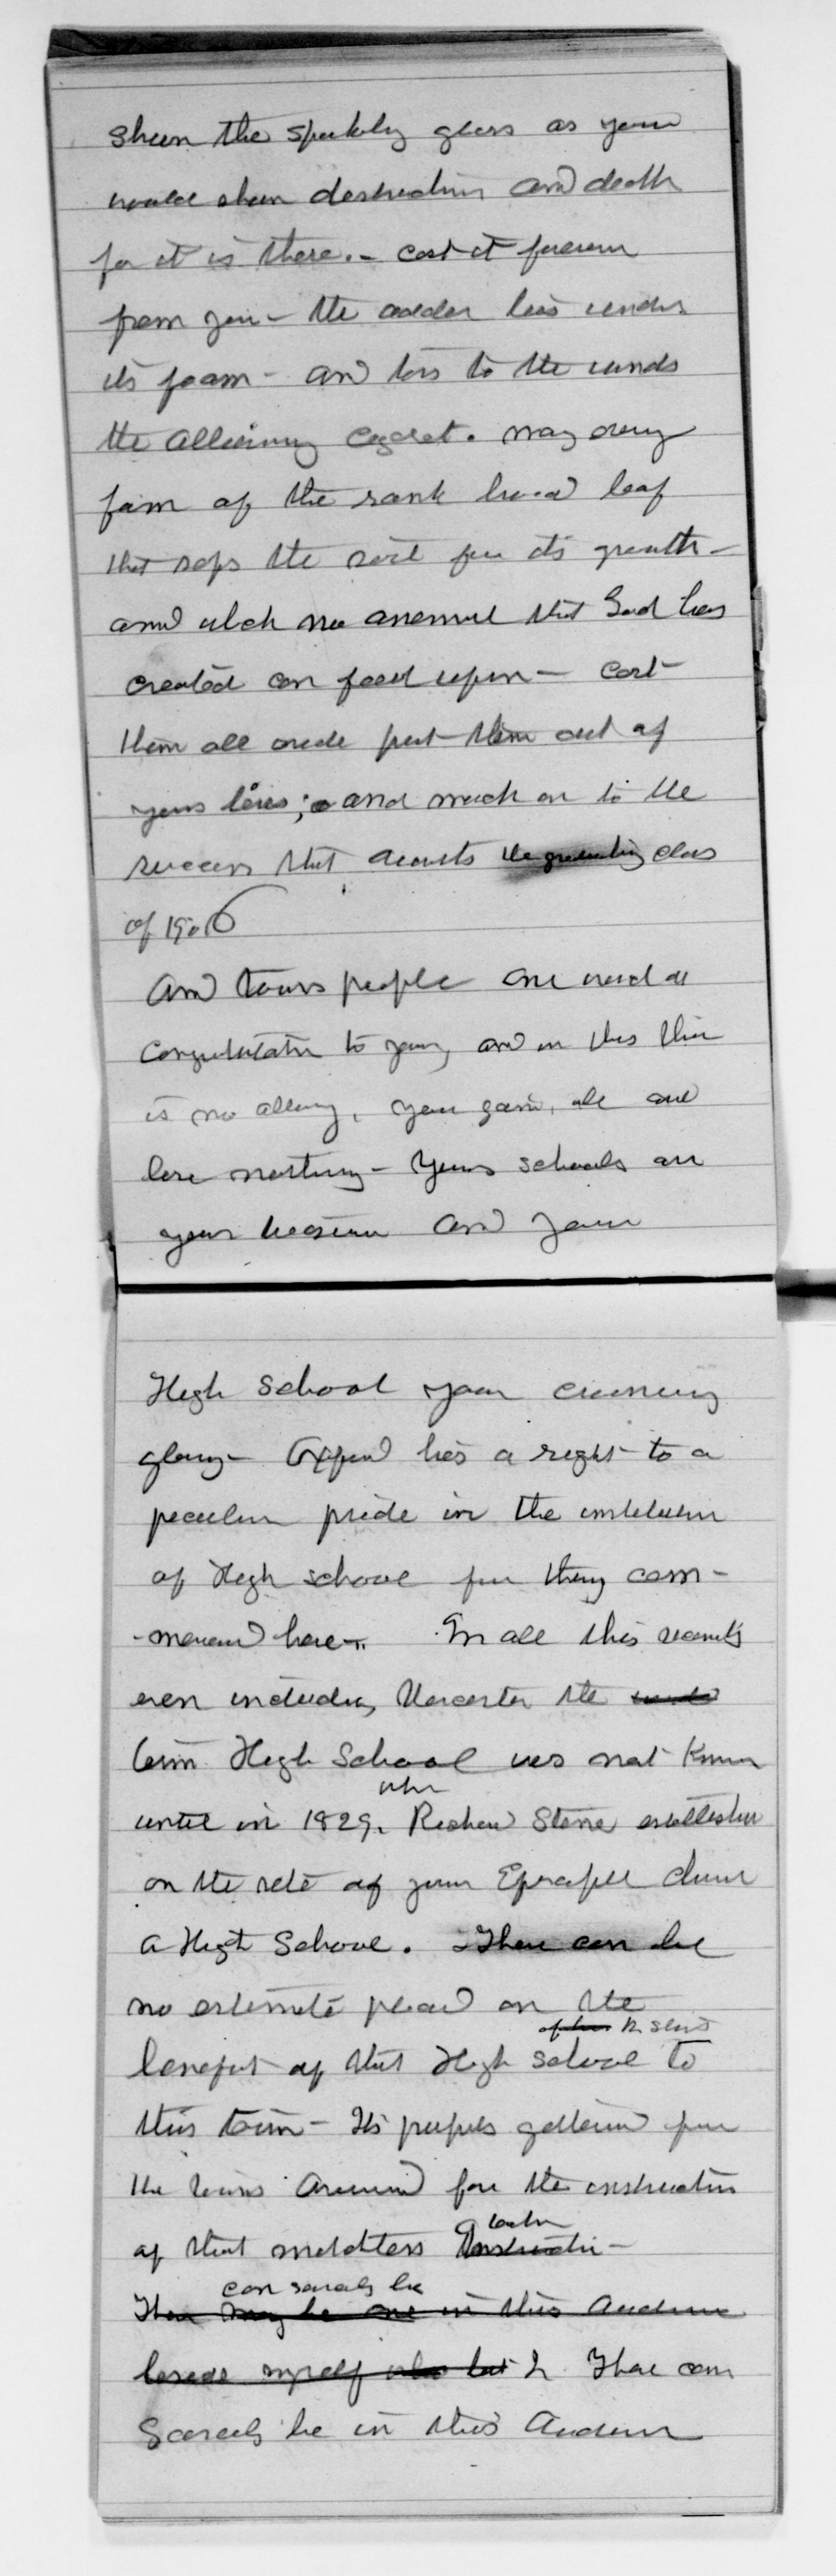 Shun the sparkling glass as you
would shun destruction and death
for it is there. - Cast it forever
from you - the adder lies under
its foam - and toss to the winds
the alluring cigaret. may every
form of the rank broad leaf
that saps the soil for its growth -
and which no animal that God has
created can feed upon - Cast
them all aside put them out of
your lives; and march on to the
success that awaits the graduating class
of 1906
And towns people one word of
Congratulation to you, and in this there
is no alloy, you gain all and
lose nothing - Your schools are
your bosom and your
High School your crowning
glory - Oxford has a right to a
peculiar pride in the institution
of High school for they com-
-menced here - In all this
even including Worcester the
term High School was not known
until in 1829. when Stone established
on the site of your Episcopal church
a High School. There can be
no estimate placed on the
of the
benefit of that High School to
this town - Its pupils gathered from
the towns around for the instruction
of that matchless teacher -
can scarcely be
There may be one in this audience
beside myself who but There can
Scarcely be in this Audience